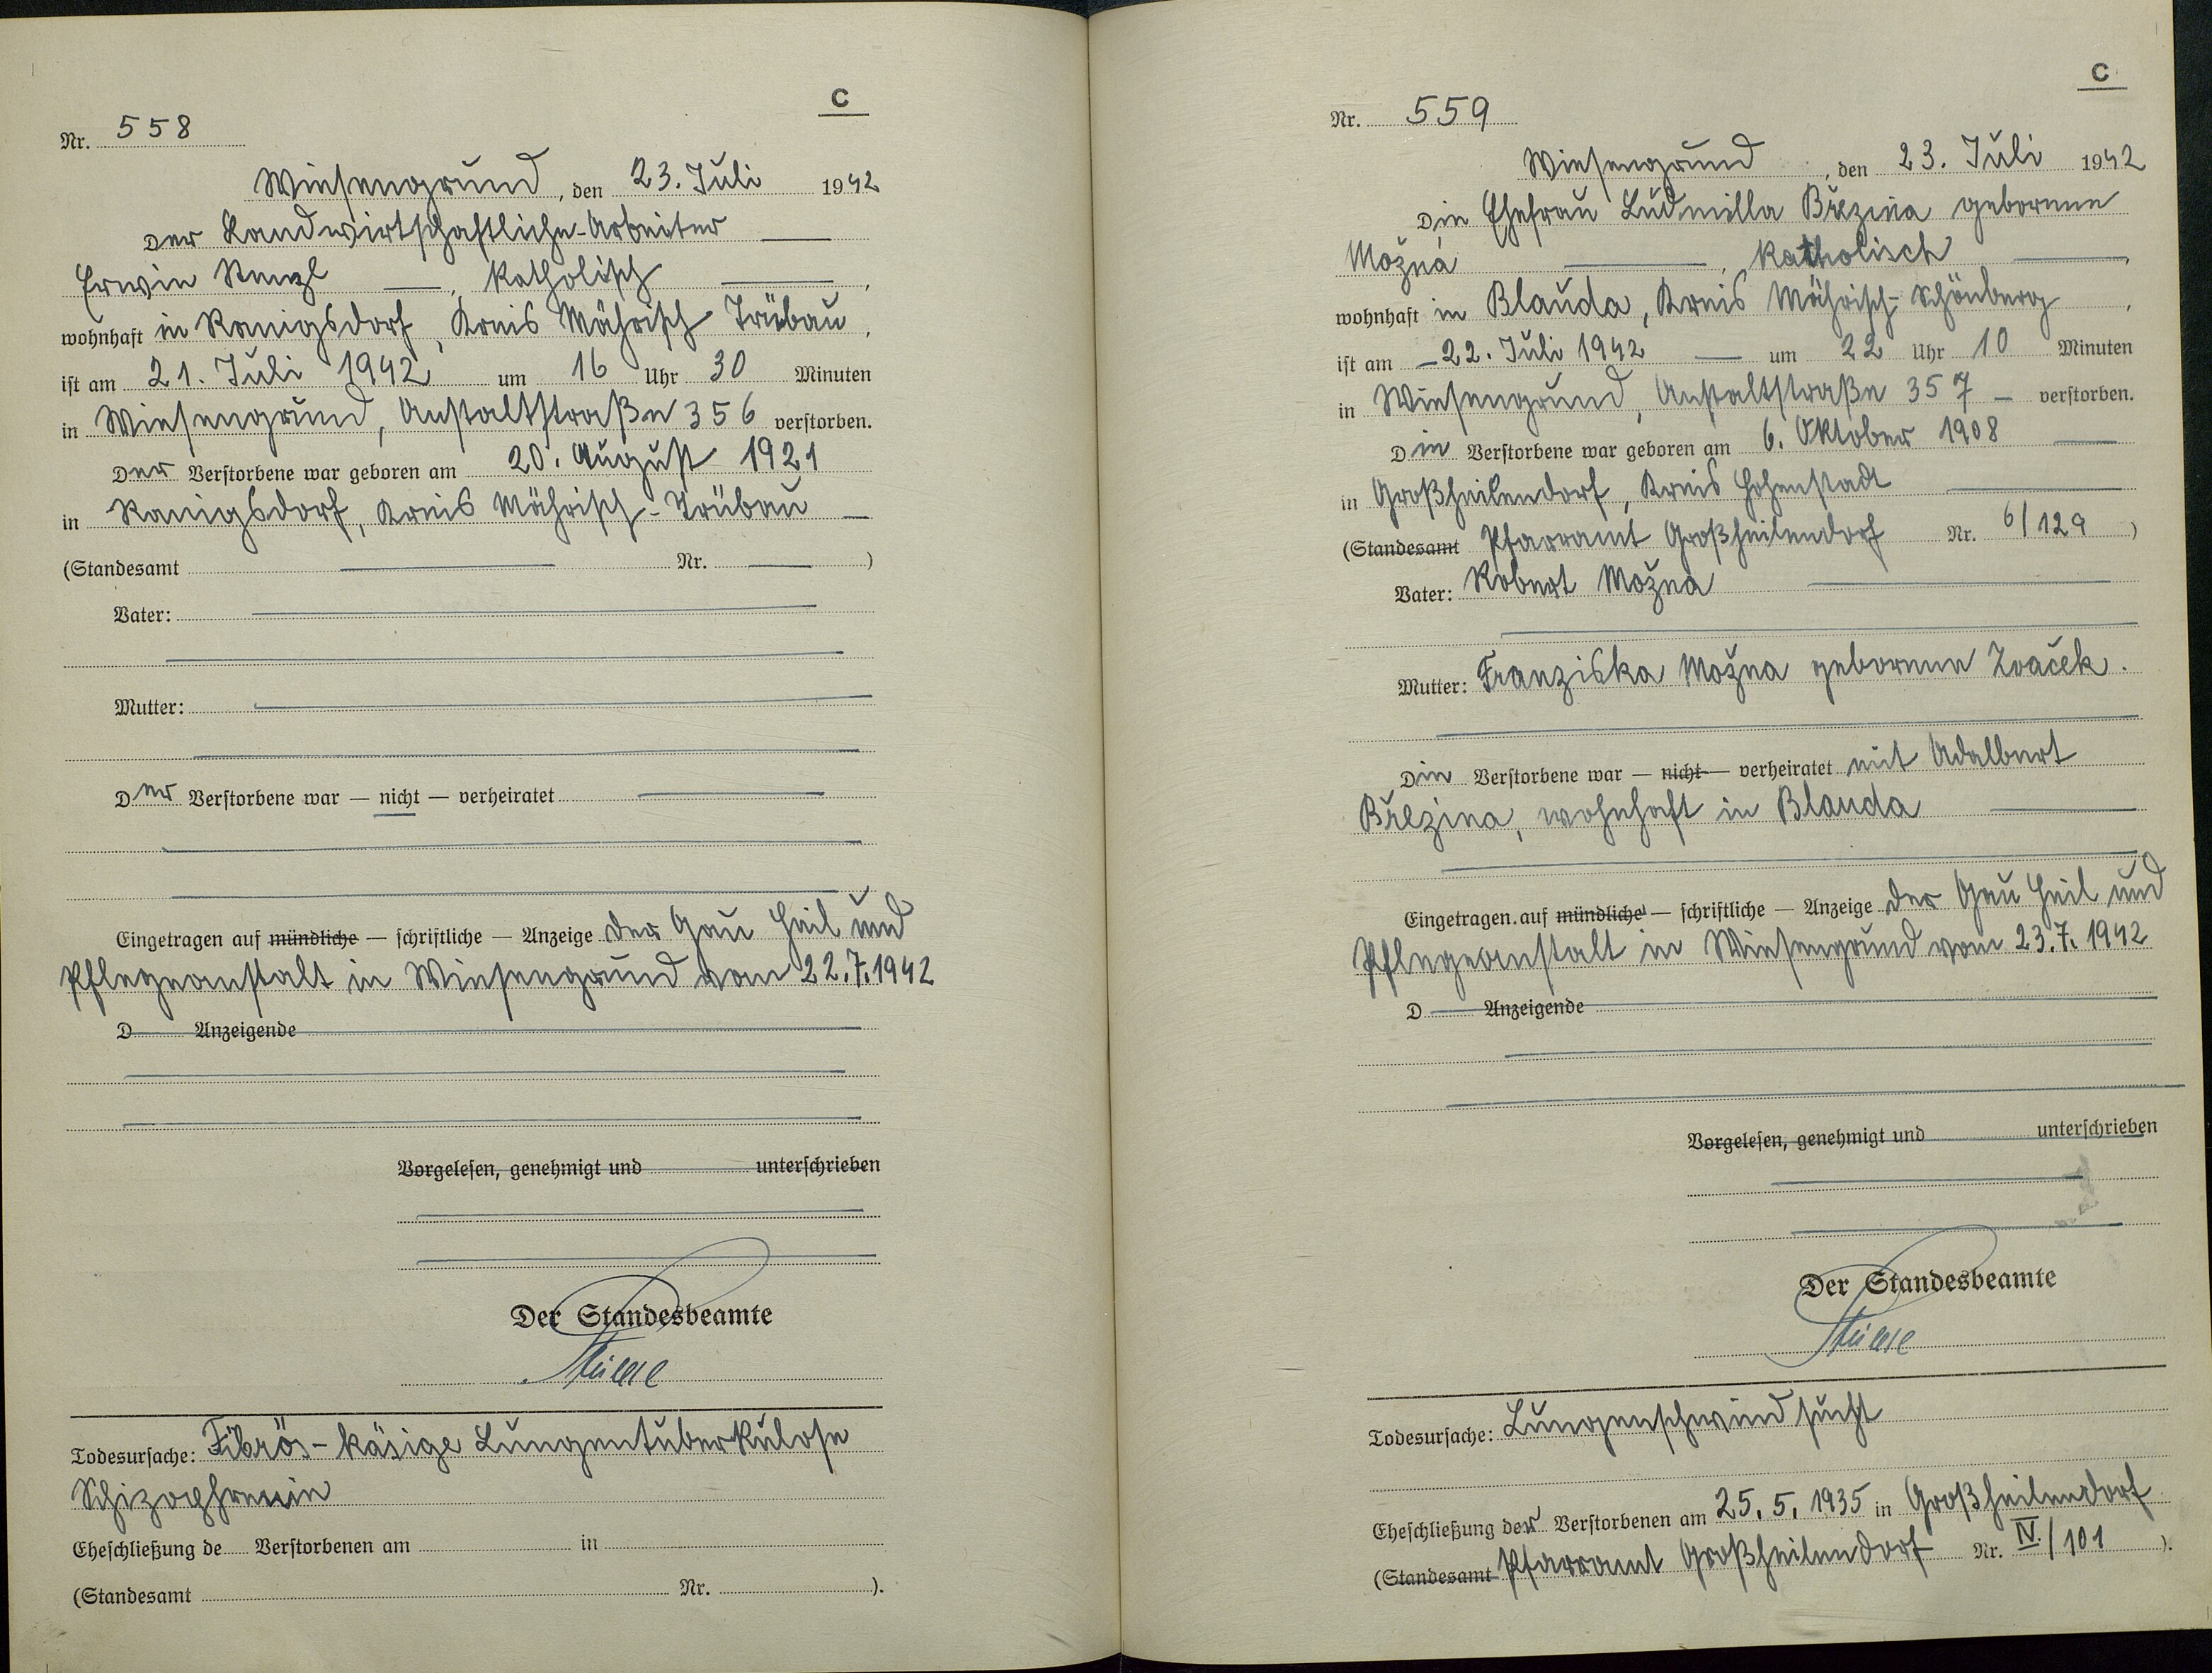 C
Nr. 558
Wiesengrund, den 23. Juli 1942
Der Landwirtschaftliche-Arbeiter
Erwin Stenzl, katholisch,
wohnhaft in Ranigsdorf, Kreis Mährisch Trübau,
ist am 21. Juli 1942 um 16 Uhr 30 Minuten
in Wiesengrund, Anstaltstraße 356 verstorben.
Der Verstorbene war geboren am 20. August 1921
in Ranigsdorf, Kreis Mährisch-Trübau
(Standesamt Nr. )
Vater:
Mutter:
Der Verstorbene war — nicht — verheiratet
Eingetragen auf mündliche — schriftliche — Anzeige der Gau Heil und
Pflegeanstalt in Wiesengrund vom 22.7.1942
D Anzeigende
Vorgelesen, genehmigt und unterschrieben
Der Standesbeamte
Todesursache: Fibrös-käsige Lungentuberkulose
Schizophrenie
Eheschließung de Verstorbenen am in
(Standesamt Nr. ).
C
Nr. 559
Wiesengrund, den 23. Juli 1942
Die Ehefrau Ludmilla Březina geborene
Možná, katholisch,
wohnhaft in Blauda, Kreis Mährisch-Schönberg,
ist am 22. Juli 1942 um 22 Uhr 10 Minuten
in Wiesengrund, Anstaltstraße 357 verstorben.
Die Verstorbene war geboren am 6. Oktober 1908
in Großheilendorf, Kreis Hohenstadt
(Standesamt Pfarramt Großheilendorf Nr. 6/129)
Vater: Robert Možna
Mutter: Franziska Možna geborene Zvaček.
Die Verstorbene war — nicht — verheiratet mit Adalbert
Březina, wohnhaft in Blauda
Eingetragen auf mündliche — schriftliche — Anzeige der Gau Heil und
Pflegeanstalt in Wiesengrund vom 23.7.1942
D Anzeigende
Vorgelesen, genehmigt und unterschrieben
Der Standesbeamte
Todesursache: Lungenschwindsucht
Eheschließung der Verstorbenen am 25.5.1935 in Großheilendorf
(Standesamt Pfarramt Großheilendorf Nr. IV/101).